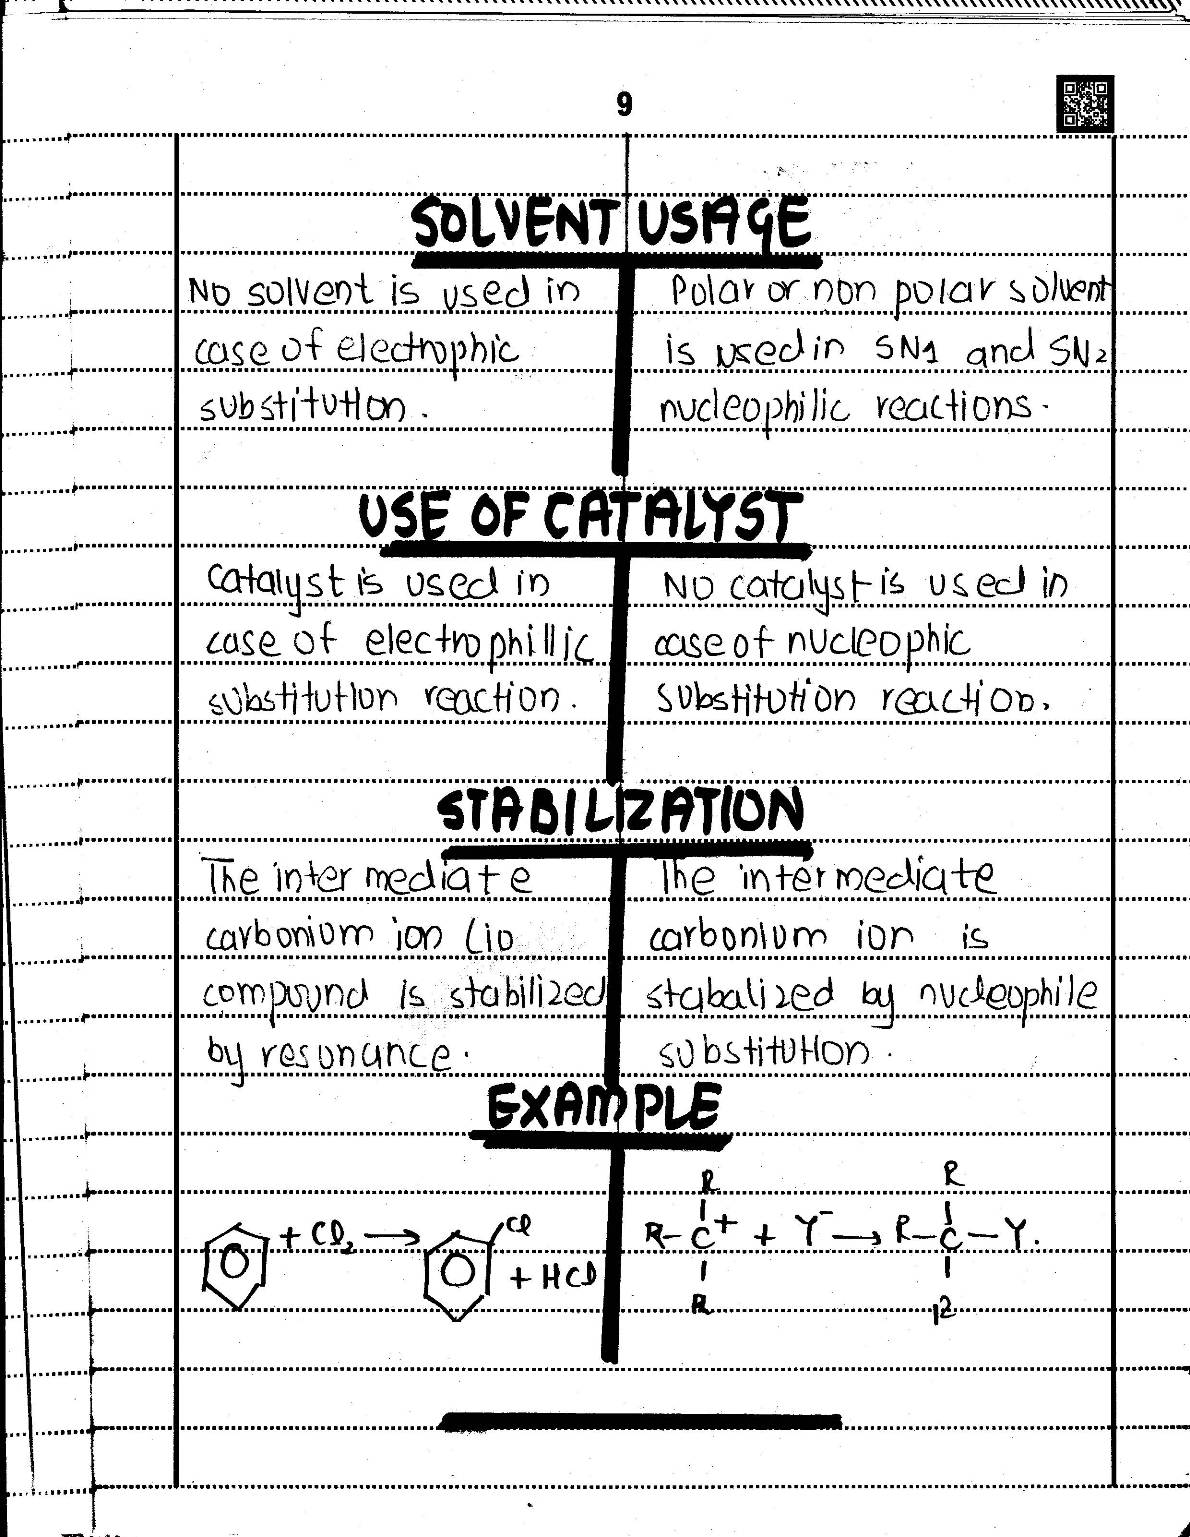 9
SOLVENT USAGE
No solvent is used in
case of electrophic
substitution.
Polar or non polar solvent
is used in SN1 and SN2
nucleophilic reactions.
USE OF CATALYST
Catalyst is used in
case of electrophillic
substitution reaction.
No catalyst is used in
case of nucleophic
substitution reaction.
STABILIZATION
The intermediate
carbonium ion (io
compound is stabilized
by resonance.
The intermediate
carbonium ion is
stabalized by nucleophile
substitution.
EXAMPLE
+ Cl₂ → Cl
+ HCl
R R
R-C+ + Y⁻ → R-C-Y.
R R